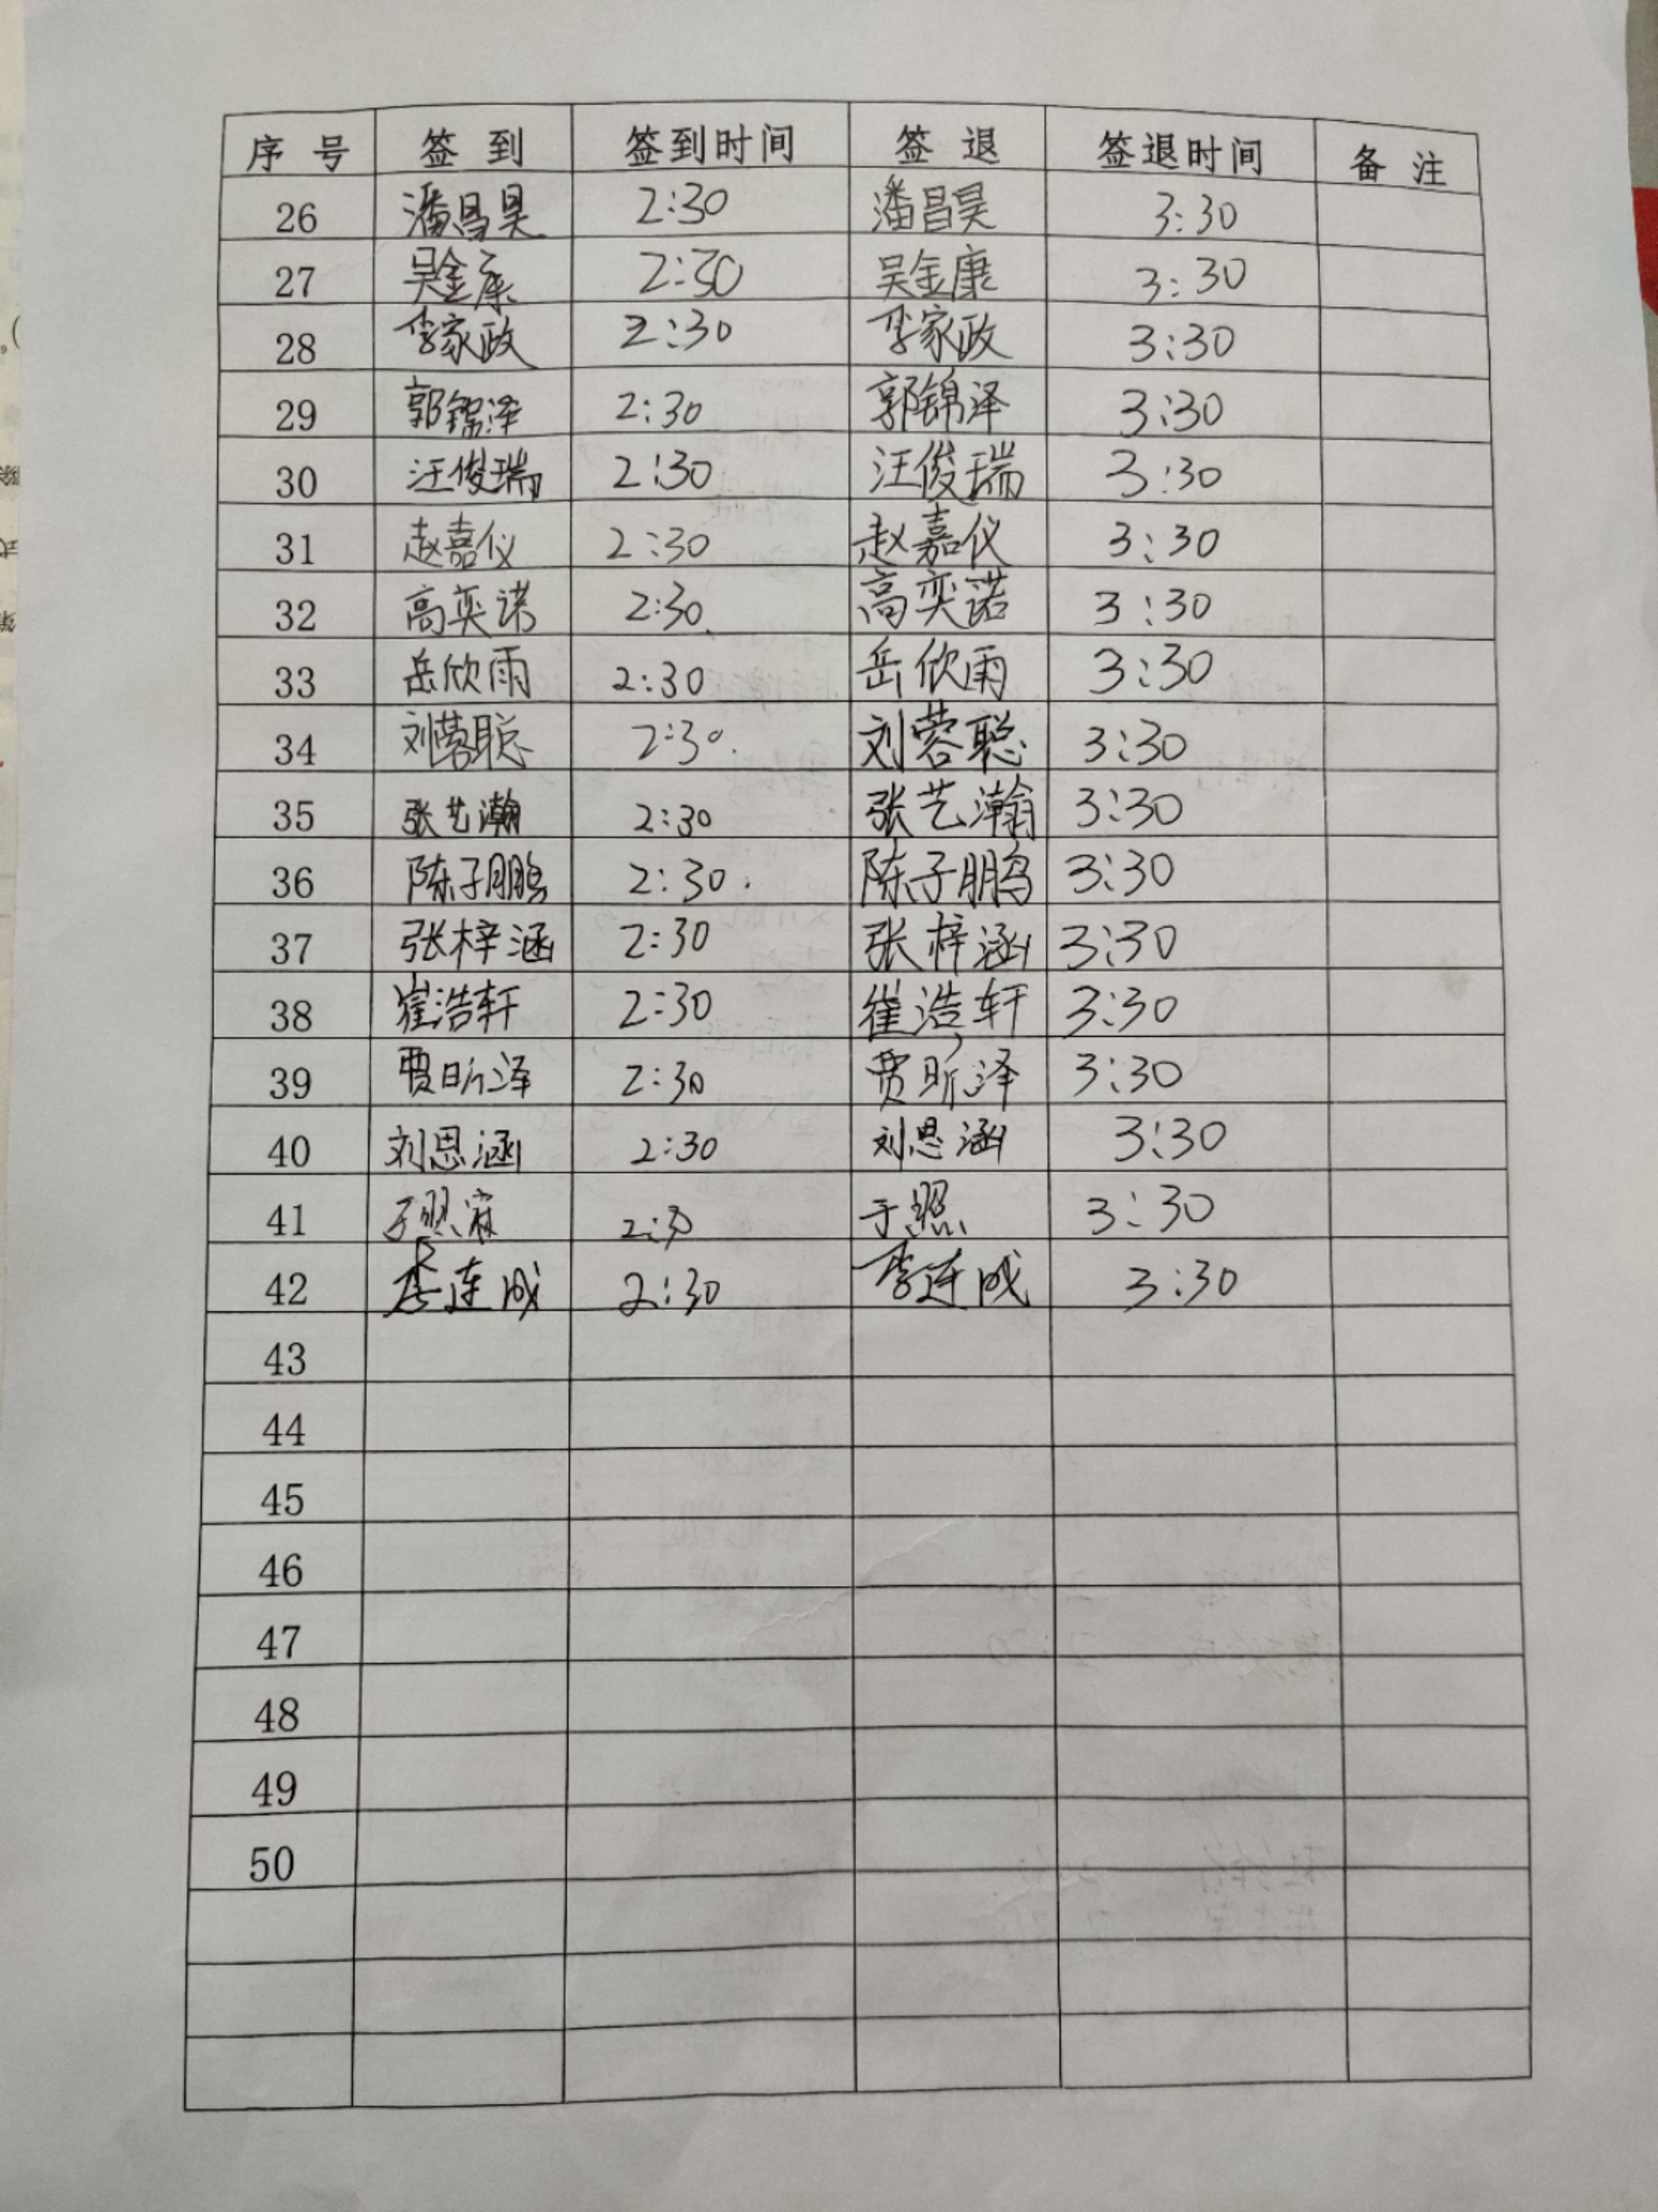 序号 签到 签到时间 签退 签退时间 备注
26 潘昌昊 2:30 潘昌昊 3:30
27 吴金康 2:30 吴金康 3:30
28 李家政 2:30 李家政 3:30
29 郭锦泽 2:30 郭锦泽 3:30
30 汪俊瑞 2:30 汪俊瑞 3:30
31 赵嘉仪 2:30 赵嘉仪 3:30
32 高奕诺 2:30 高奕诺 3:30
33 岳欣雨 2:30 岳欣雨 3:30
34 刘蓉聪 2:30 刘蓉聪 3:30
35 张艺瀚 2:30 张艺瀚 3:30
36 陈子鹏 2:30 陈子鹏 3:30
37 张梓涵 2:30 张梓涵 3:30
38 崔浩轩 2:30 崔浩轩 3:30
39 贾昕泽 2:30 贾昕泽 3:30
40 刘思涵 2:30 刘思涵 3:30
41 2:30 于照 3:30
42 李连成 2:30 李连成 3:30
43
44
45
46
47
48
49
50